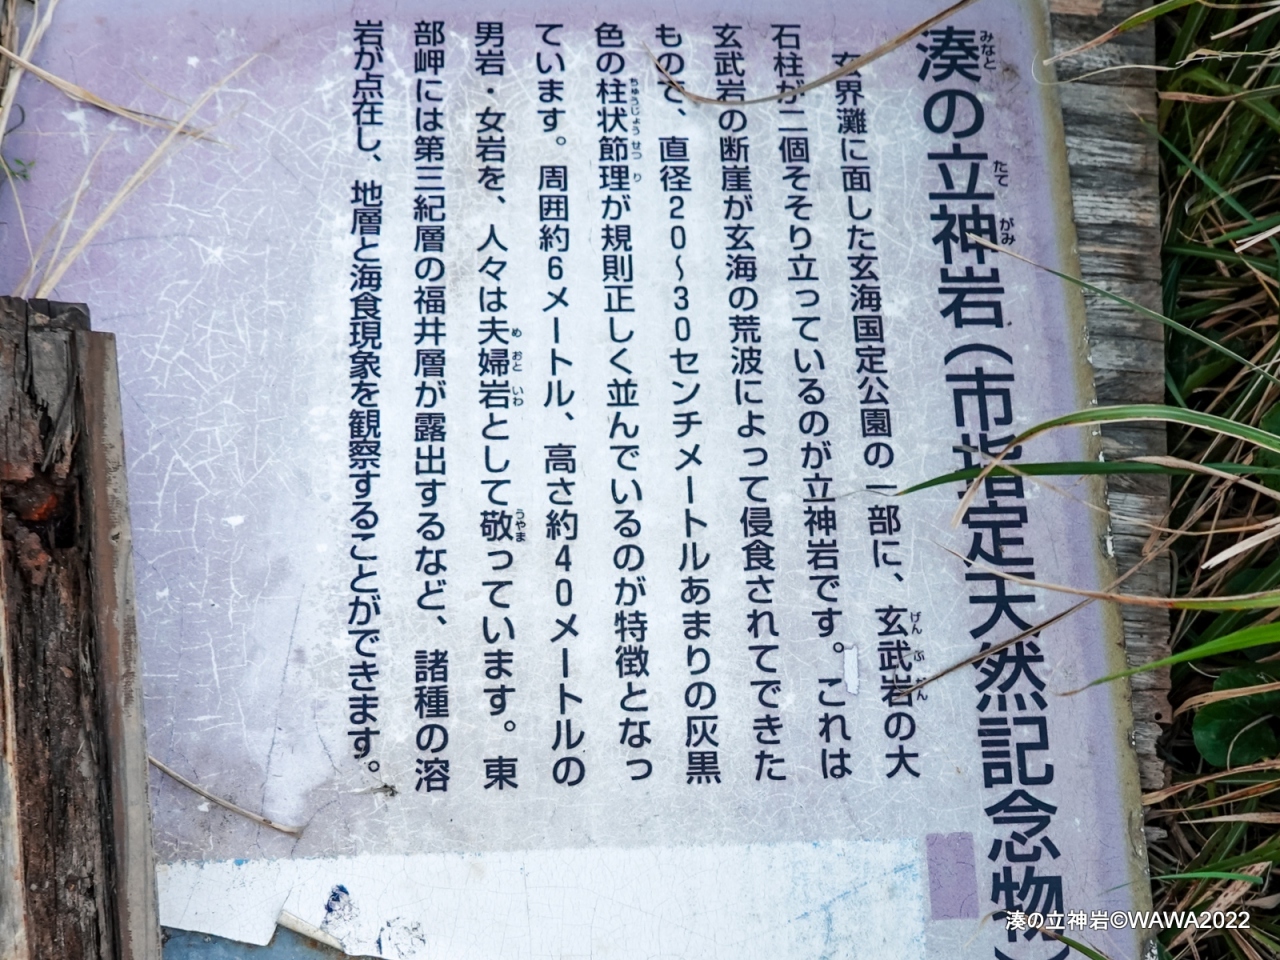 湊の立神岩（市指定天然記念物）
玄界灘に面した玄海国定公園の一部に、玄武岩の大
石柱が二個そそり立っているのが立神岩です。これは
玄武岩の断崖が玄海の荒波によって侵食されてできた
もので、直径20〜30センチメートルあまりの灰黒
色の柱状節理が規則正しく並んでいるのが特徴となっ
ています。周囲約6メートル、高さ約40メートルの
男岩・女岩を、人々は夫婦岩として敬っています。東
部岬には第三紀層の福井層が露出するなど、諸種の溶
岩が点在し、地層と海食現象を観察することができます。
湊の立神岩©WAWA2022